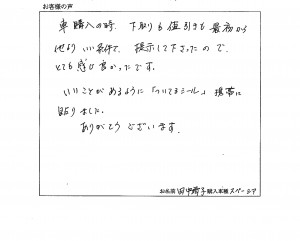 お客様の声
車購入の時、下取りも値引きも最初から
他より いい条件で、提示して下さったので、
とても感じ良かったです。
いいことがあるように「ついてまシール」携帯に
貼りました。
ありがとうございます。
お名前 田中 子 購入車種 スペーシア